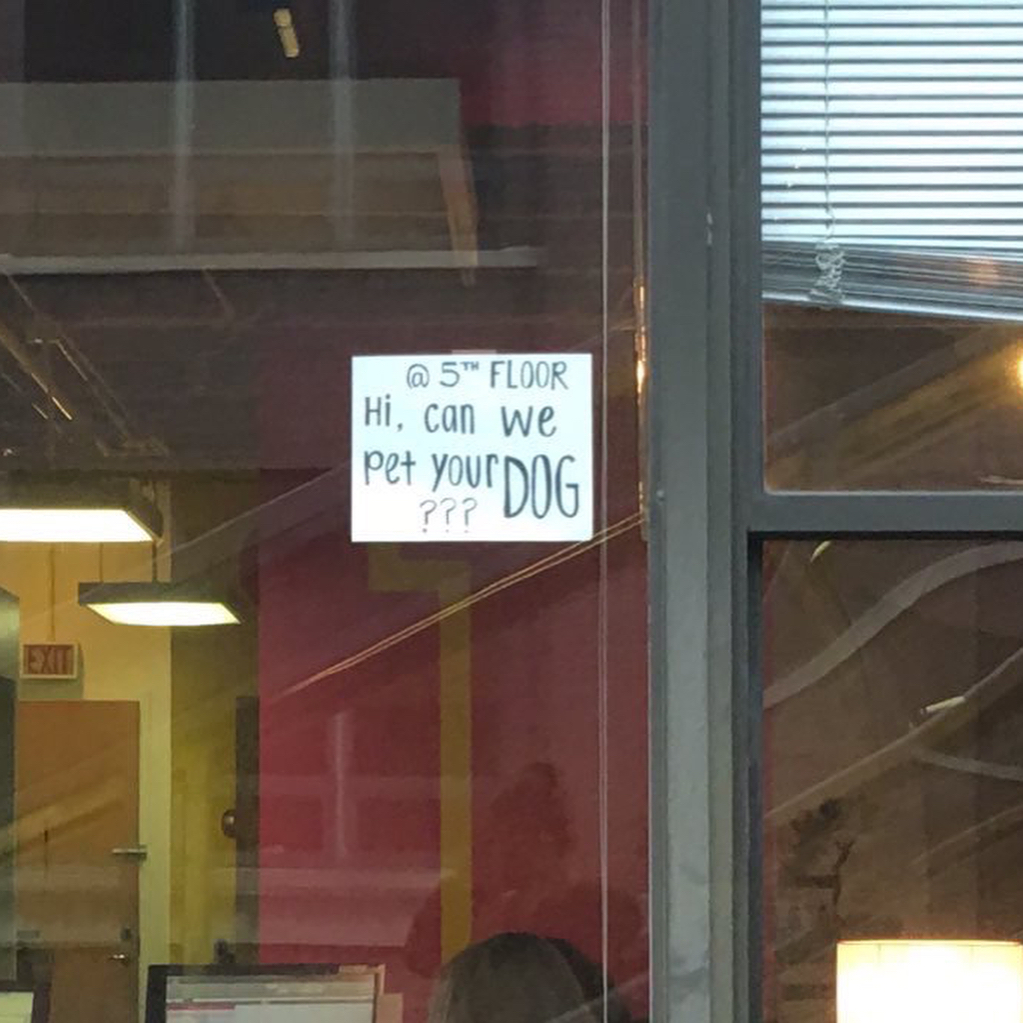 @ 5TH FLOOR
Hi, can we
pet your DOG
???
EXIT